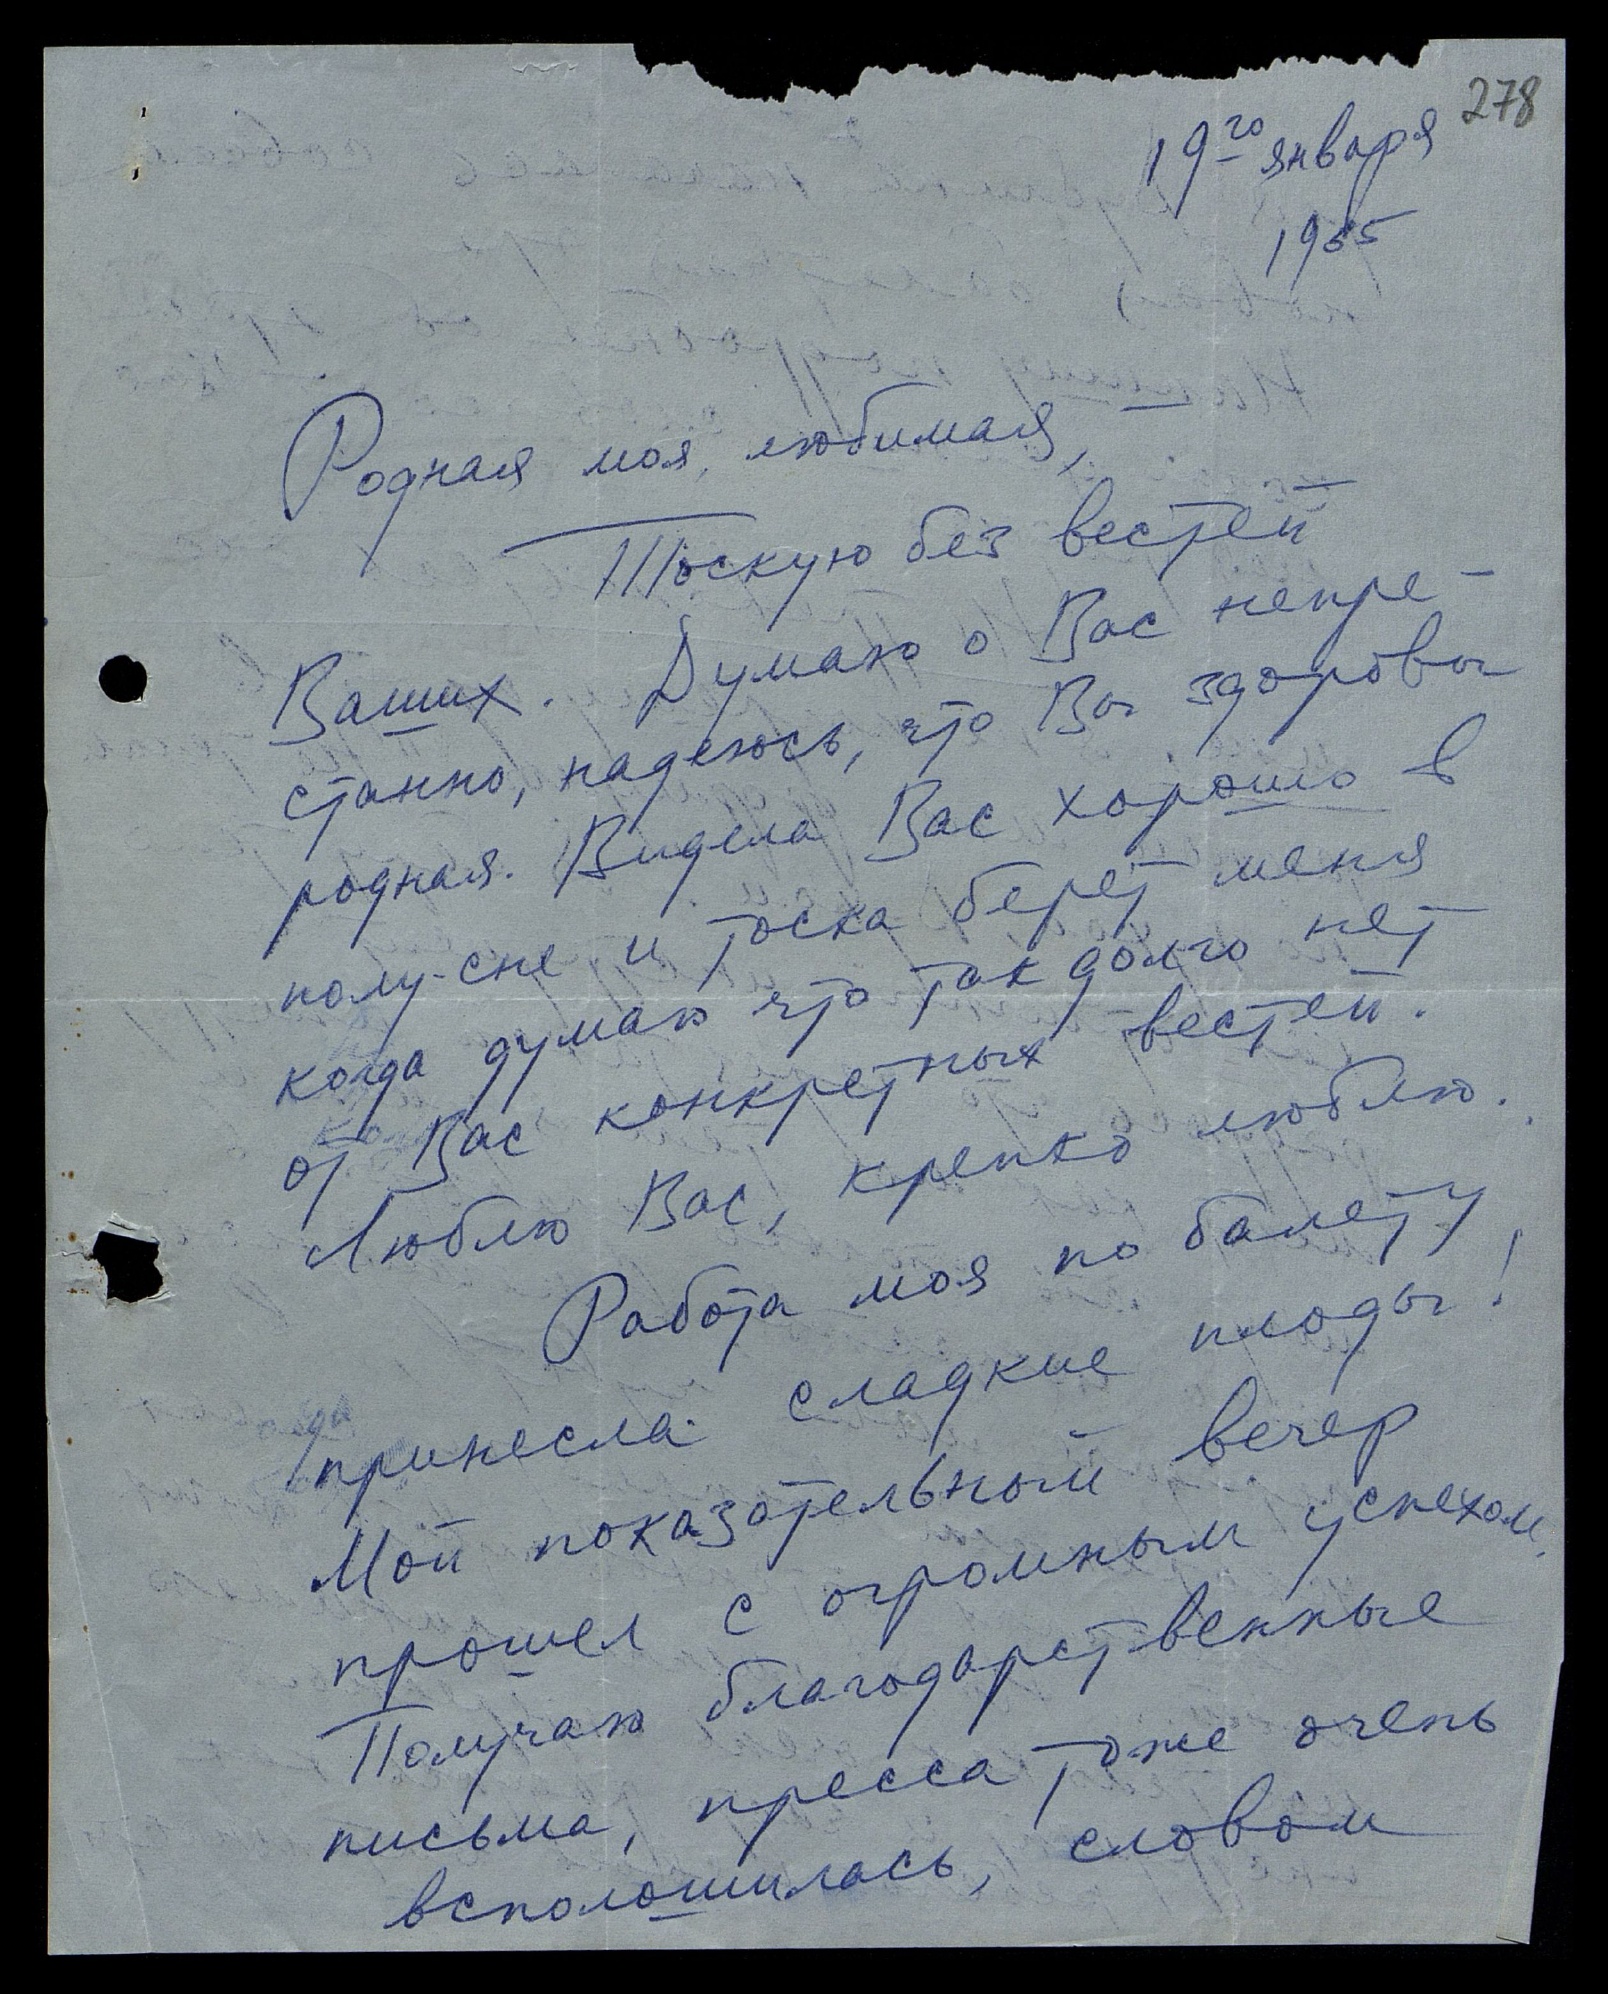 278
19го января
1955
Родная моя, любимая, —
Тоскую без вестей
Ваших. Думаю о Вас непре-
станно, надеюсь, что Вы здоровы
родная. Видела Вас хорошо в
полу-сне и тоска берет меня
когда думаю что так долго нет
от Вас конкретных вестей.
Люблю Вас, крепко люблю.
Работа моя по балету
принесла сладкие плоды!
Мой показательный вечер
прошел с огромным успехом.
Получаю благодарственные
письма, пресса тоже очень
всполошилась, словом